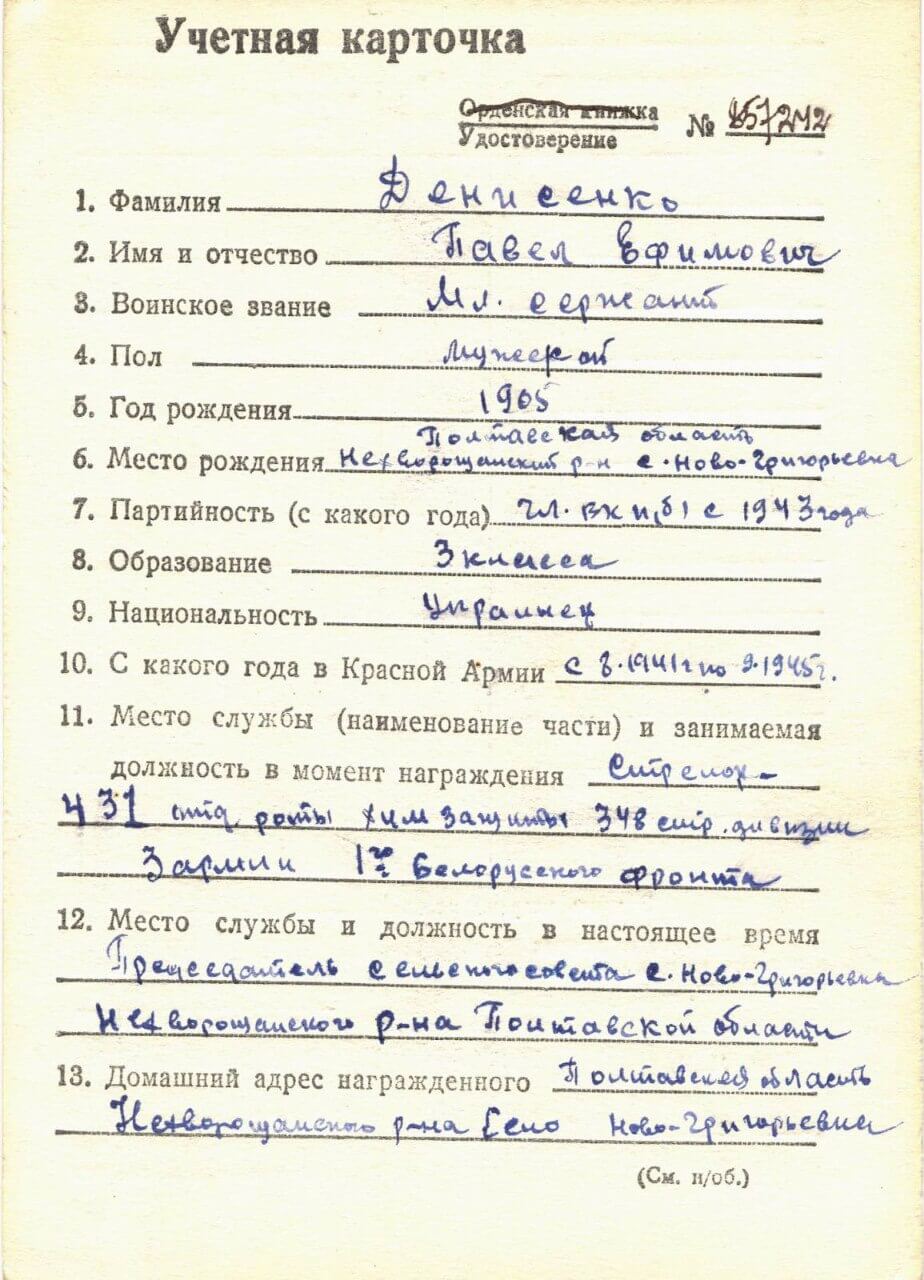 Учетная карточка
Орденская книжка
Удостоверение № 857242
1. Фамилия Денисенко
2. Имя и отчество Павел Ефимович
3. Воинское звание Мл. сержант
4. Пол Мужской
5. Год рождения 1905
Полтавская область
6. Место рождения Нехворощанский р-н с. Ново-Григорьевка
7. Партийность (с какого года) чл. ВКП(б) с 1943 года
8. Образование 3 класса
9. Национальность Украинец
10. С какого года в Красной Армии с 8.1941г по 9.1945г.
11. Место службы (наименование части) и занимаемая
должность в момент награждения Стрелок-
431 отд. роты хим защиты 348 стр. дивизии
3 армии 1го Белорусского фронта
12. Место службы и должность в настоящее время
Председатель сельского совета с. Ново-Григорьевка
Нехворощанского р-на Полтавской области
13. Домашний адрес награжденного Полтавская область
Нехворощанского р-на Село Ново-Григорьевка
(См. н/об.)